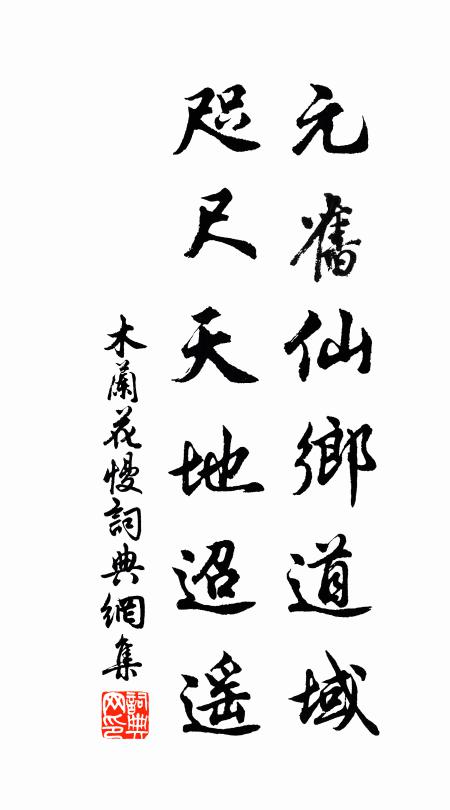 元舊仙鄉道域
咫尺天地迢遥
木蘭花慢詞典網集
詞典网印